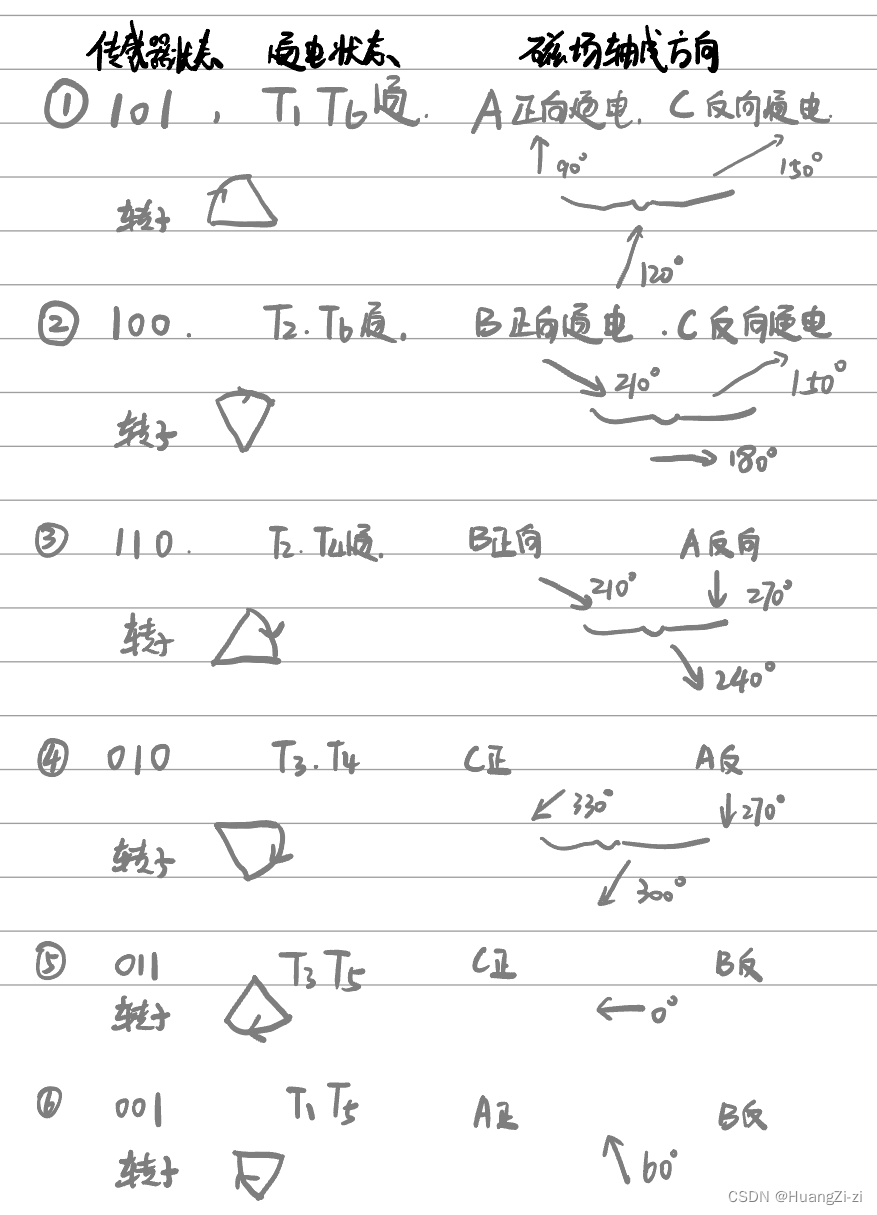 传感器状态 通电状态 磁场轴线方向
① 101， T1 T6通. A正向通电. C反向通电.
90° 150°
转子
120°
② 100. T2. T6通. B正向通电. C反向通电
210° 150°
转子
180°
③ 110. T2. T4通. B正向 A反向
210° 270°
转子
240°
④ 010 T3. T4 C正 A反
330° 270°
转子
300°
⑤ 011 T3 T5 C正 B反
转子 0°
⑥ 001 T1 T5 A正 B反
转子 60°
CSDN @HuangZi-zi